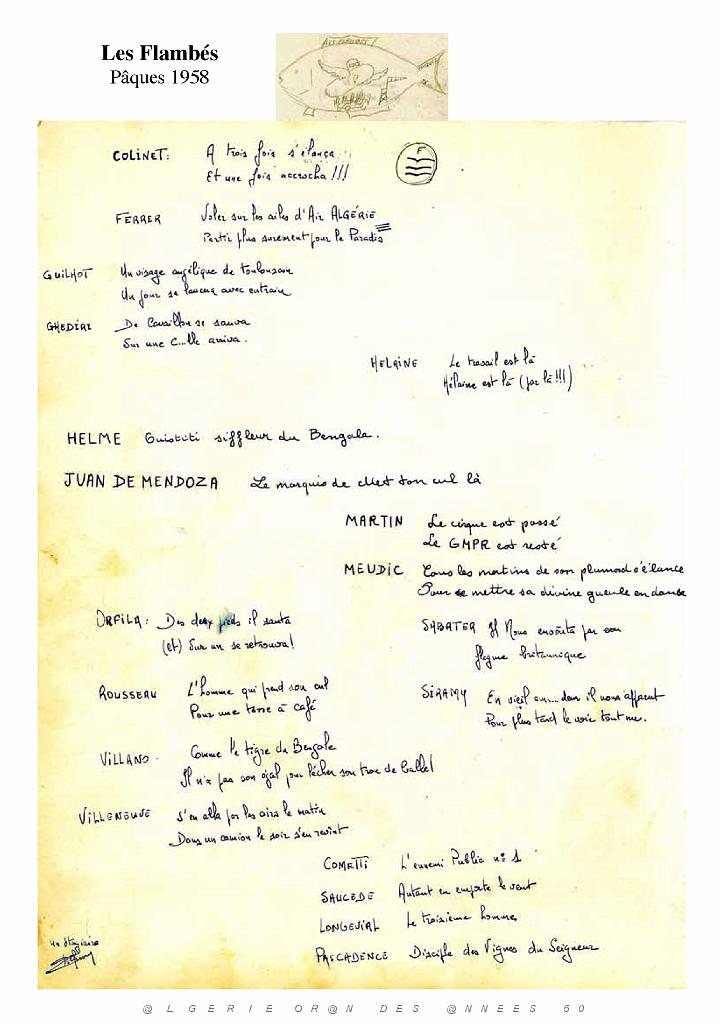 Les Flambés
Pâques 1958
COLINET: A trois fois s'élança
Et une fois accrocha !!!
F
FERRER Voler sur les ailes d'Air ALGÉRIE
Partir plus surement pour le Paradis
GUILHOT Un visage angélique de toulousain
Un jour se lança avec entrain
GHEDIRI De Cavaillon se sauva
Sur une C...lle arriva.
HELAINE Le travail est là
Hélaine est là (par là !!!)
HELME Ouistiti siffleur du Bengale.
JUAN DE MENDOZA Le marquis de Met ton cul là
MARTIN Le cirque est passé
Le GMPR est resté
MEUDIC Tous les matins de son plumard s'élance
Pour se mettre sa divine gueule en danse
ORFILA: Des deux pieds il sauta
(et) Sur un se retrouva!
SABATER Il Nous par son
flegme britannique
ROUSSEAU L'homme qui prend son cul
Pour une tasse à café
SIRAMY En vieil il nous apparut
Pour plus tard le voir tout nu.
VILLANO. Comme le tigre du Bengale
Il n'a pas son égal pour lécher son trou de balle!
VILLENEUVE s'en alla par les airs le matin
Dans un camion le soir s'en revint
COMETTI L'ennemi Public n° 1
SAUCEDE Autant en emporte le vent
LONGEVIAL Le troisième homme
PASCADENCE Disciple des Vignes du Seigneur
Un stagiaire
@ L G E R I E O R @ N D E S @ N N E E S 5 0